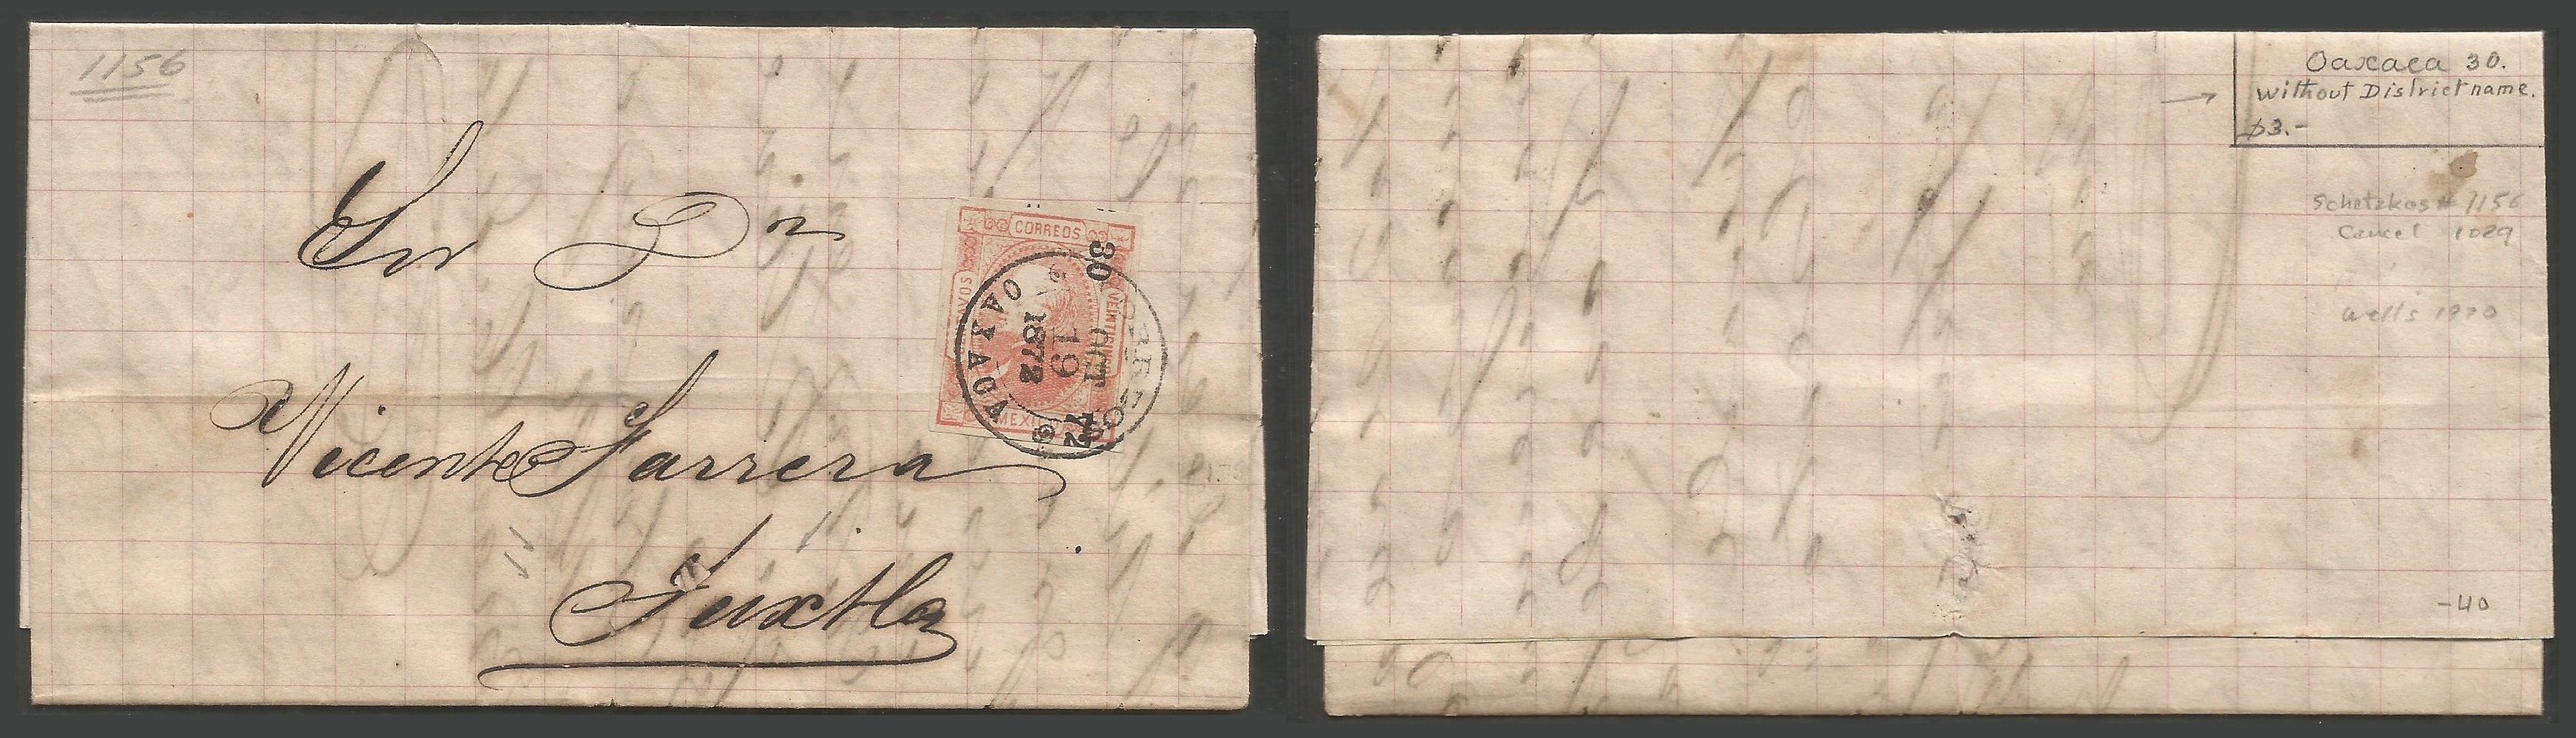 1156
Sr Dn
Vicente Farrera
Tuxtla
CORREOS
VEINTICINCO
MEXICO
30
72
OCT
19
1872
OAXACA
Oaxaca 30.
without District name.
$3.-
Schatzkes # 1156
Cancel 1029
Wells 1970
-40